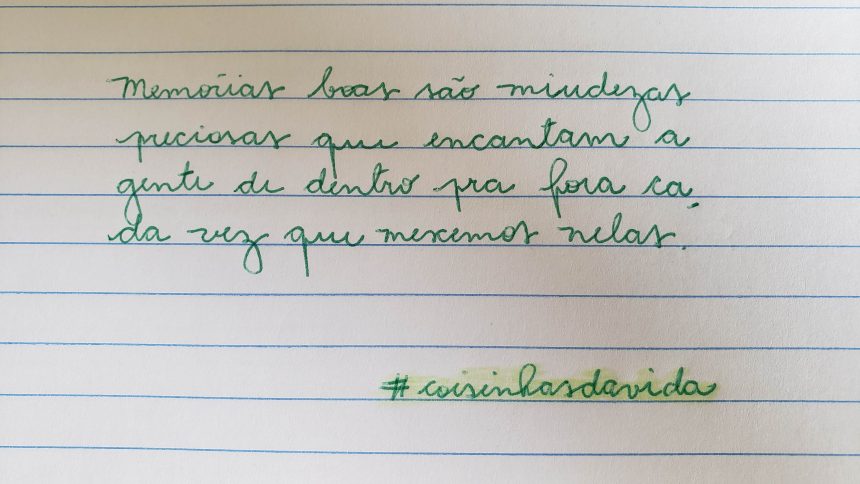 Memórias boas são miudezas
preciosas que encantam a
gente de dentro pra fora ca-
da vez que mexemos nelas.
#coisinhasdavida